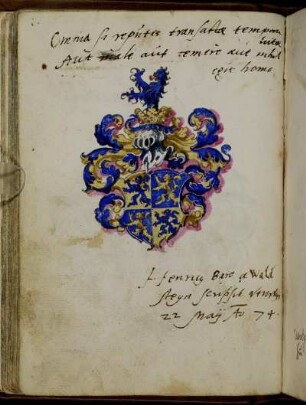 Omnia si repetes transactae tempora
vitae
Aut male aut temere aut nihil
egit homo
Henric Baro a Wald
steyn scripsit
22 Maij Ao 74